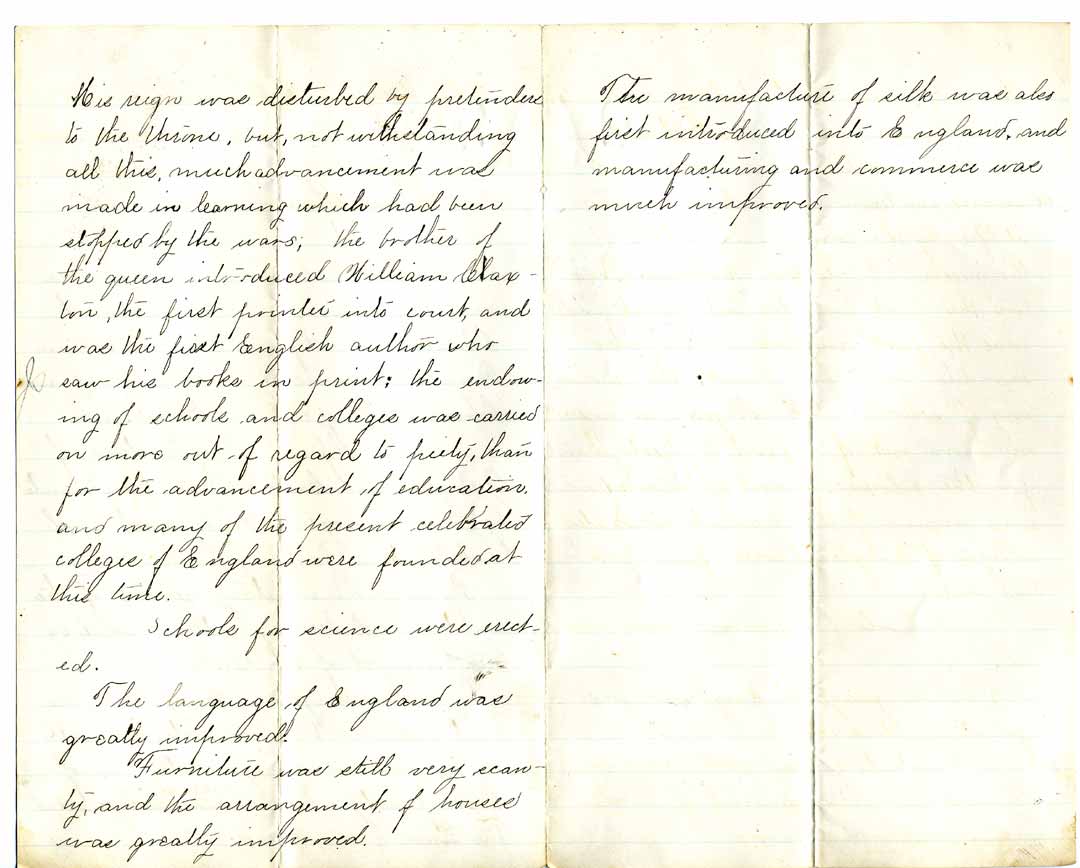 His reign was disturbed by pretenders
to the throne, but, notwithstanding
all this, much advancement was
made in learning which had been
stopped by the wars; the brother of
the queen introduced William Clax-
ton, the first printer into court, and
was the first English author who
saw his books in print; the endow-
ing of schools and colleges was carried
on more out of regard to piety, than
for the advancement of education,
and many of the present celebrated
colleges of England were founded at
this time.
Schools for science were erect-
ed.
The language of England was
greatly improved.
Furniture was still very scan-
ty, and the arrangement of houses
was greatly improved.
The manufacture of silk was also
first introduced into England, and
manufacturing and commerce was
much improved.